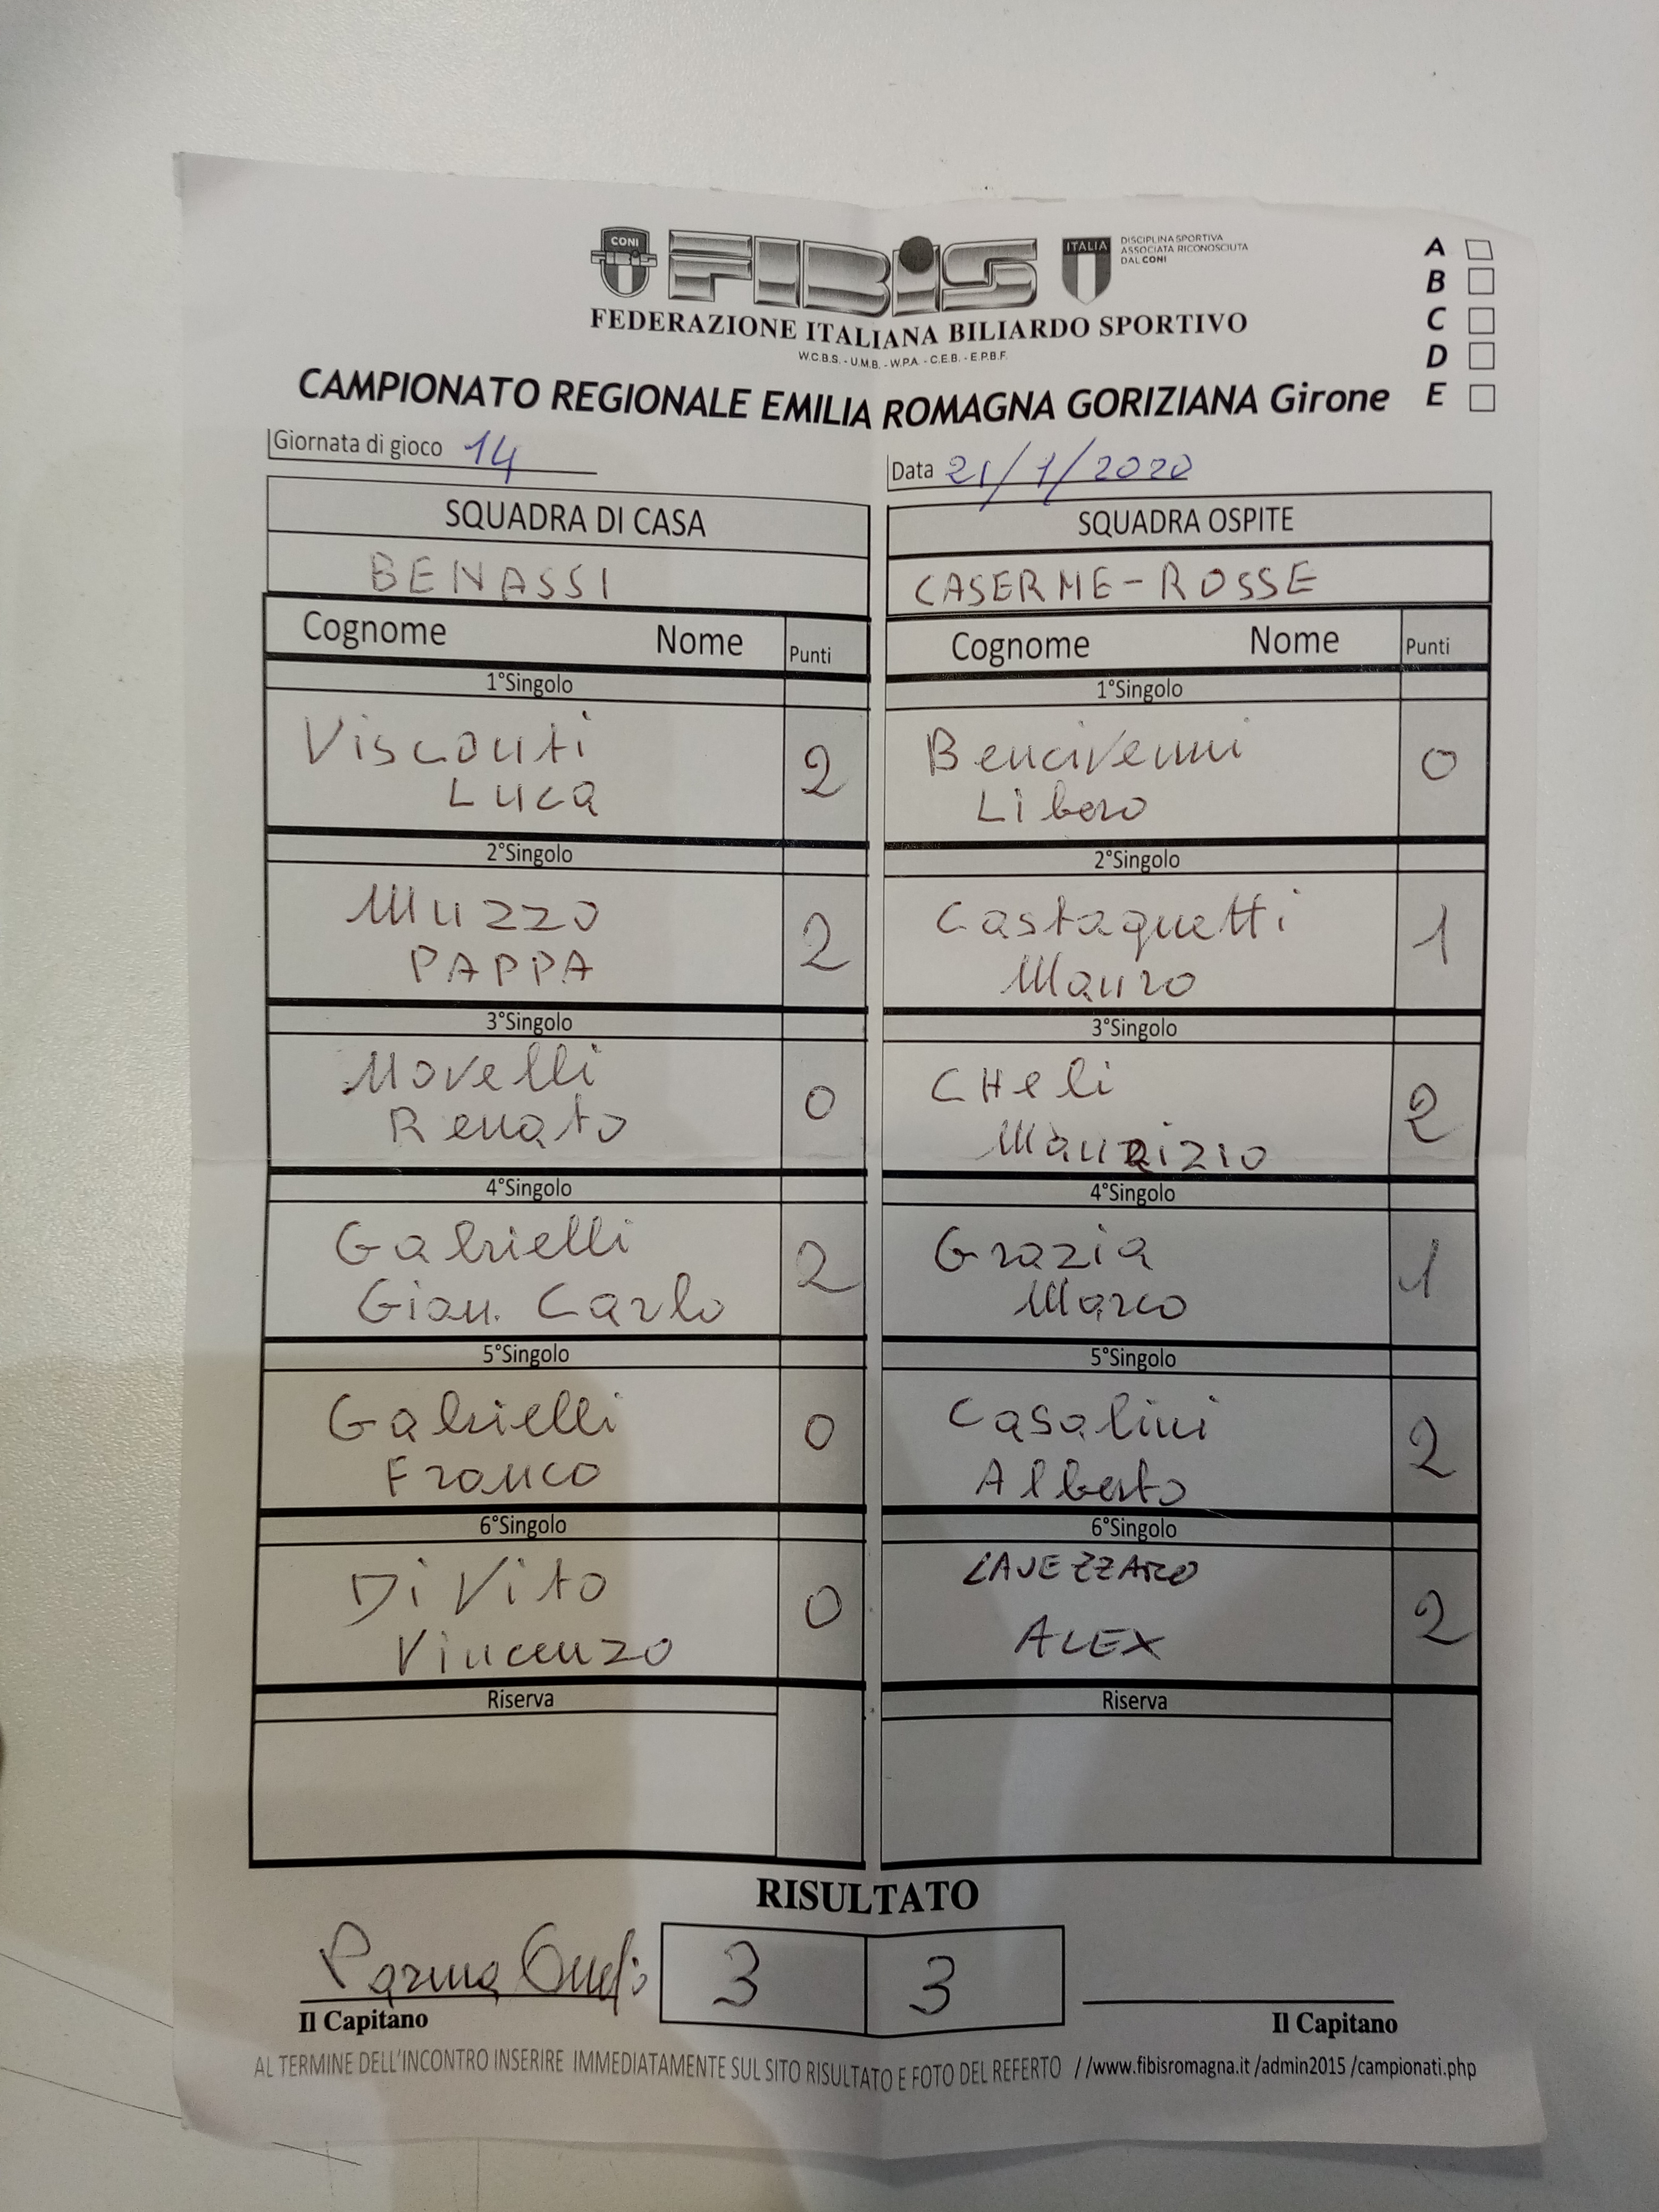 CONI
FIBIS
ITALIA
DISCIPLINA SPORTIVA
ASSOCIATA RICONOSCIUTA
DAL CONI
FEDERAZIONE ITALIANA BILIARDO SPORTIVO
W.C.B.S. - U.M.B. - W.P.A. - C.E.B. - E.P.B.F.
A
B
C
D
E
CAMPIONATO REGIONALE EMILIA ROMAGNA GORIZIANA Girone
Giornata di gioco 14
Data 21/1/2020
SQUADRA DI CASA
SQUADRA OSPITE
BENASSI
CASERME-ROSSE
Cognome Nome Punti
Cognome Nome Punti
1°Singolo
1°Singolo
Visconti
Luca
2
Bencivenni
Libero
0
2°Singolo
2°Singolo
Muzzo
PAPPA
2
Castagnetti
Mauro
1
3°Singolo
3°Singolo
Morelli
Renato
0
CHeli
Maurizio
2
4°Singolo
4°Singolo
Gabrielli
Gian. Carlo
2
Grazia
Marco
1
5°Singolo
5°Singolo
Gabrielli
Franco
0
Casalini
Alberto
2
6°Singolo
6°Singolo
Di Vito
Vincenzo
0
LAVEZZARO
ALEX
2
Riserva
Riserva
RISULTATO
Parma
3
3
Il Capitano
Il Capitano
AL TERMINE DELL'INCONTRO INSERIRE IMMEDIATAMENTE SUL SITO RISULTATO E FOTO DEL REFERTO //www.fibisromagna.it /admin2015 /campionati.php